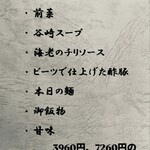 ・前菜
・谷崎スープ
・海老のチリソース
・ビーツで仕上げた酢豚
・本日の麺
・御飯物
・甘味
3960円、7260円の